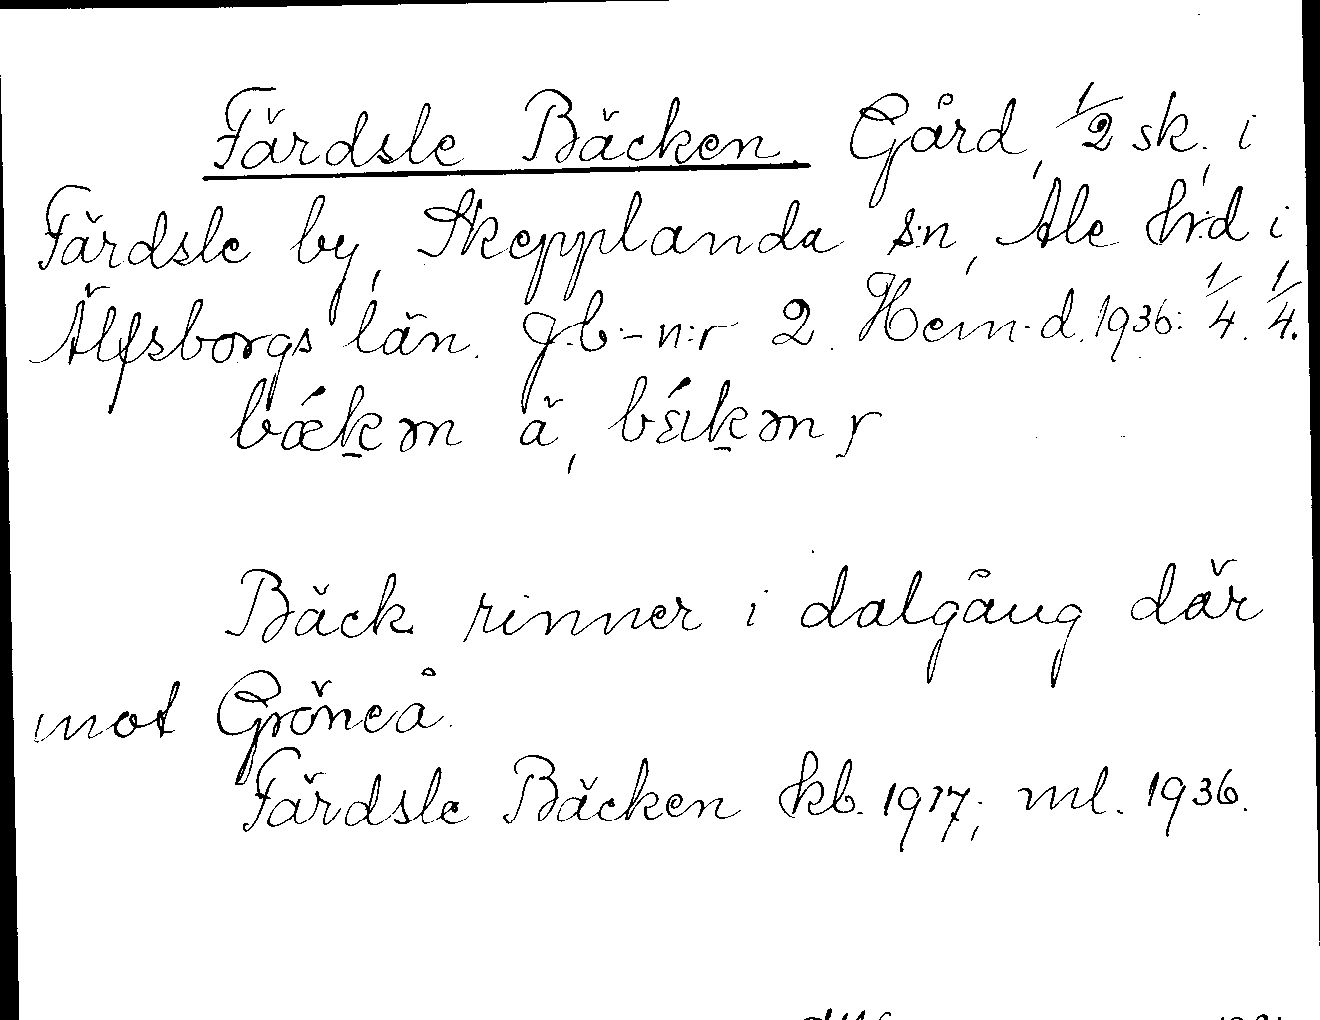 Färdsle Bäcken. Gård, 1/2 sk., i
Färdsle by, Skepplanda s:n, Ale h:d i
Älfsborgs län. g.b.-n:r 2. Hem.d. 1936: 1/4. 1/4.
bǽk̠ən ä,
Bäck rinner i dalgång där
mot Gröneå.
Färdsle Bäcken kb. 1917; ml. 1936.